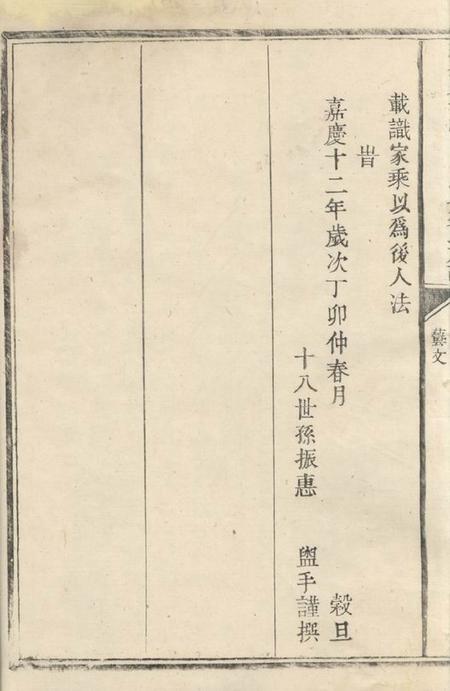 載識家乘以為後人法
旹
嘉慶十二年歲次丁卯仲春月 穀旦
十八世孫振惠 盥手謹撰
藝文